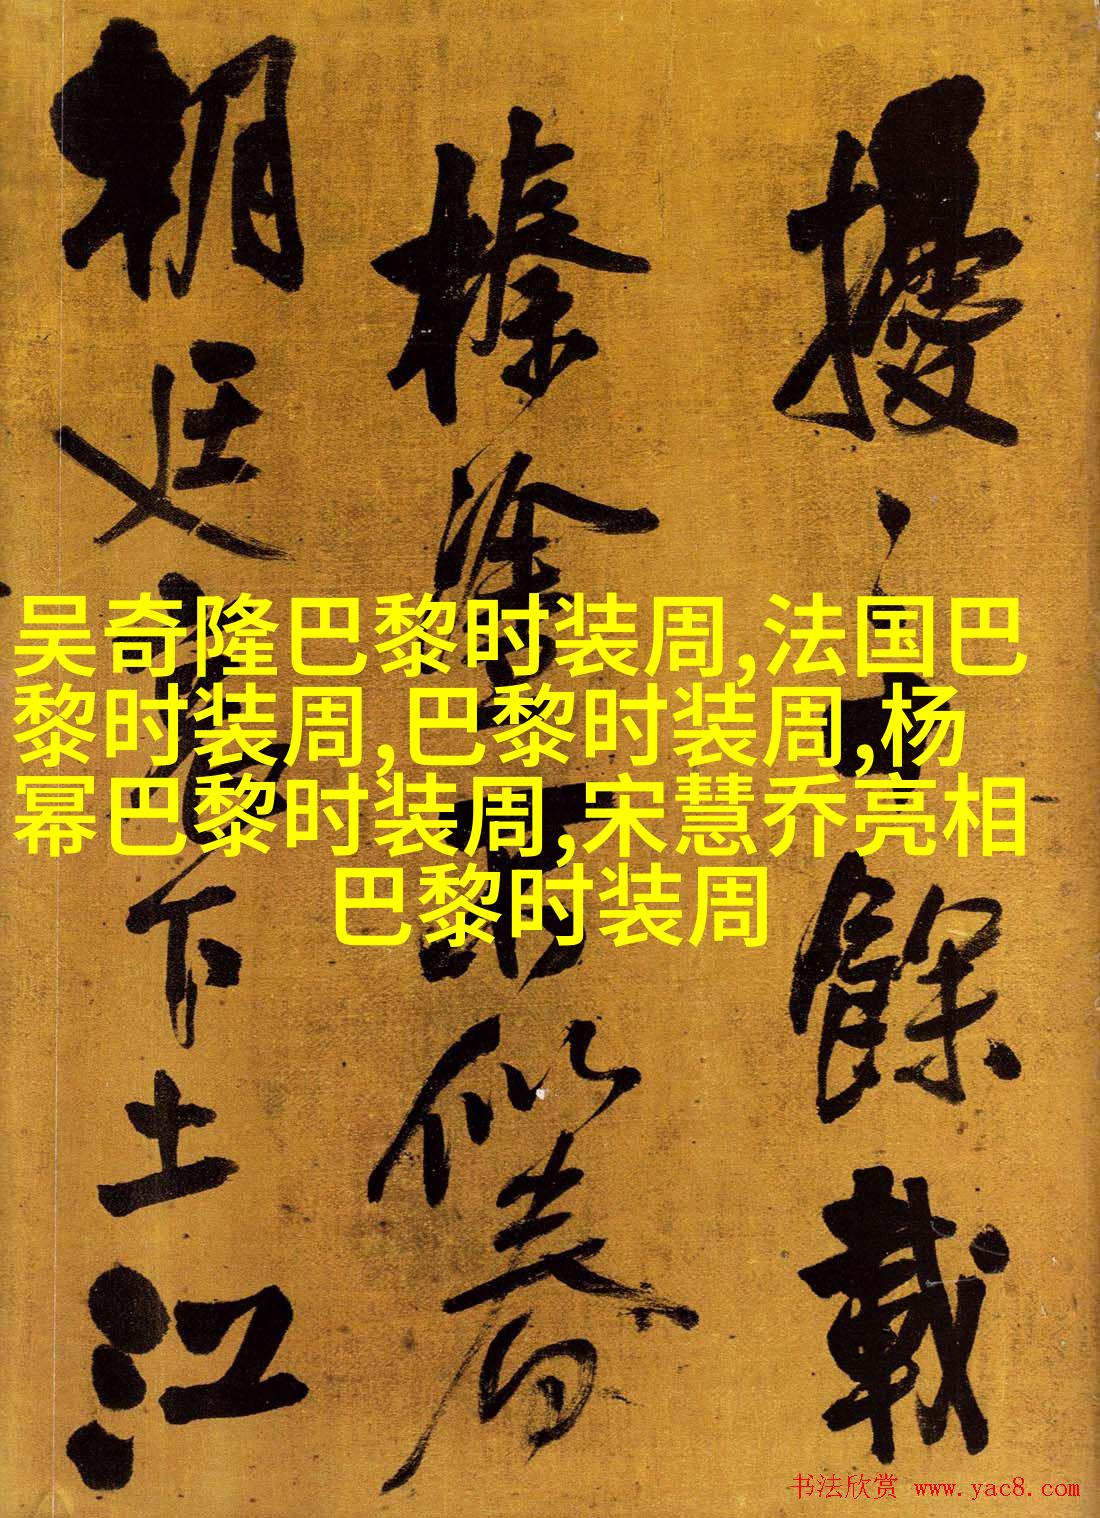 吴奇隆巴黎时装周,法国巴
黎时装周,巴黎时装周,杨
幂巴黎时装周,宋慧乔亮相
巴黎时装周
擾餘載
榛塗
朝廷下土江
书法欣赏 www.yac8.com